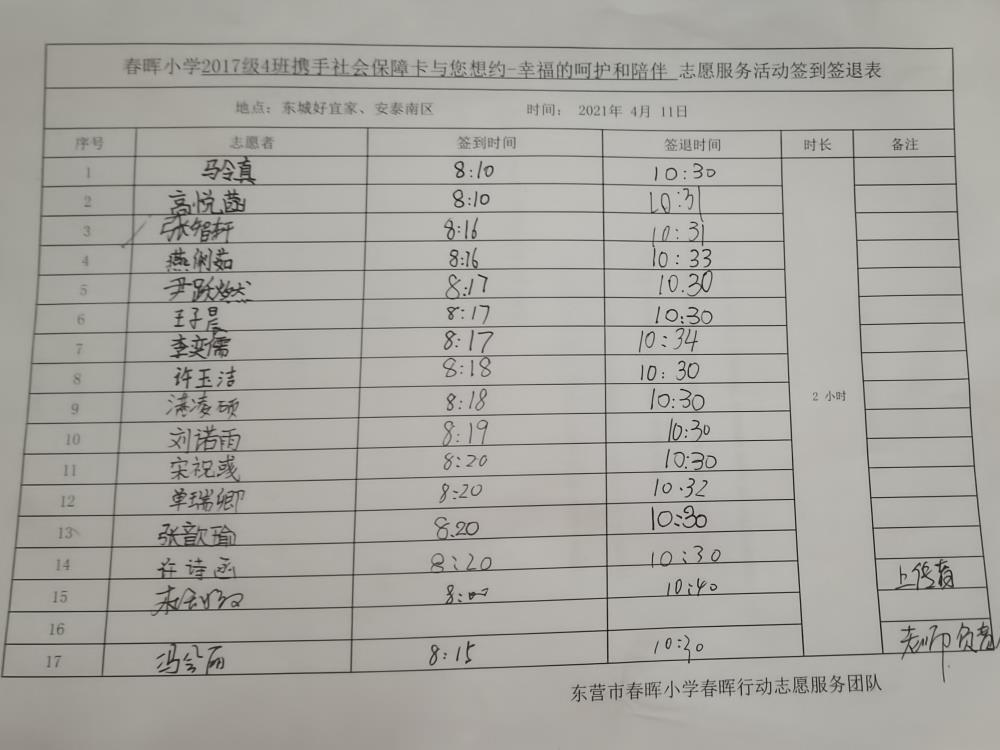 春晖小学2017级4班携手社会保障卡与您想约-幸福的呵护和陪伴 志愿服务活动签到签退表
地点：东城好宜家、安泰南区 时间： 2021年 4月 11日
序号 志愿者 签到时间 签退时间 时长 备注
1 马令真 8:10 10:30
2 高悦菡 8:10 10:31
3 张智轩 8:16 10:31
4 燕俐茹 8:16 10:33
5 尹跃燃 8:17 10.30
6 王子晨 8:17 10:30
7 李奕儒 8:17 10:34
8 许玉洁 8:18 10:30
2 小时
9 凌硕 8:18 10:30
10 刘诺雨 8:19 10:30
11 宋祝彧 8:20 10:30
12 单瑞卿 8:20 10.32
13 张歆瑜 8.20 10:30
14 许诗函 8:20 10:30
15 8:00 10:40 上传者
16
17 冯会丽 8:15 10:30 老师负责
东营市春晖小学春晖行动志愿服务团队